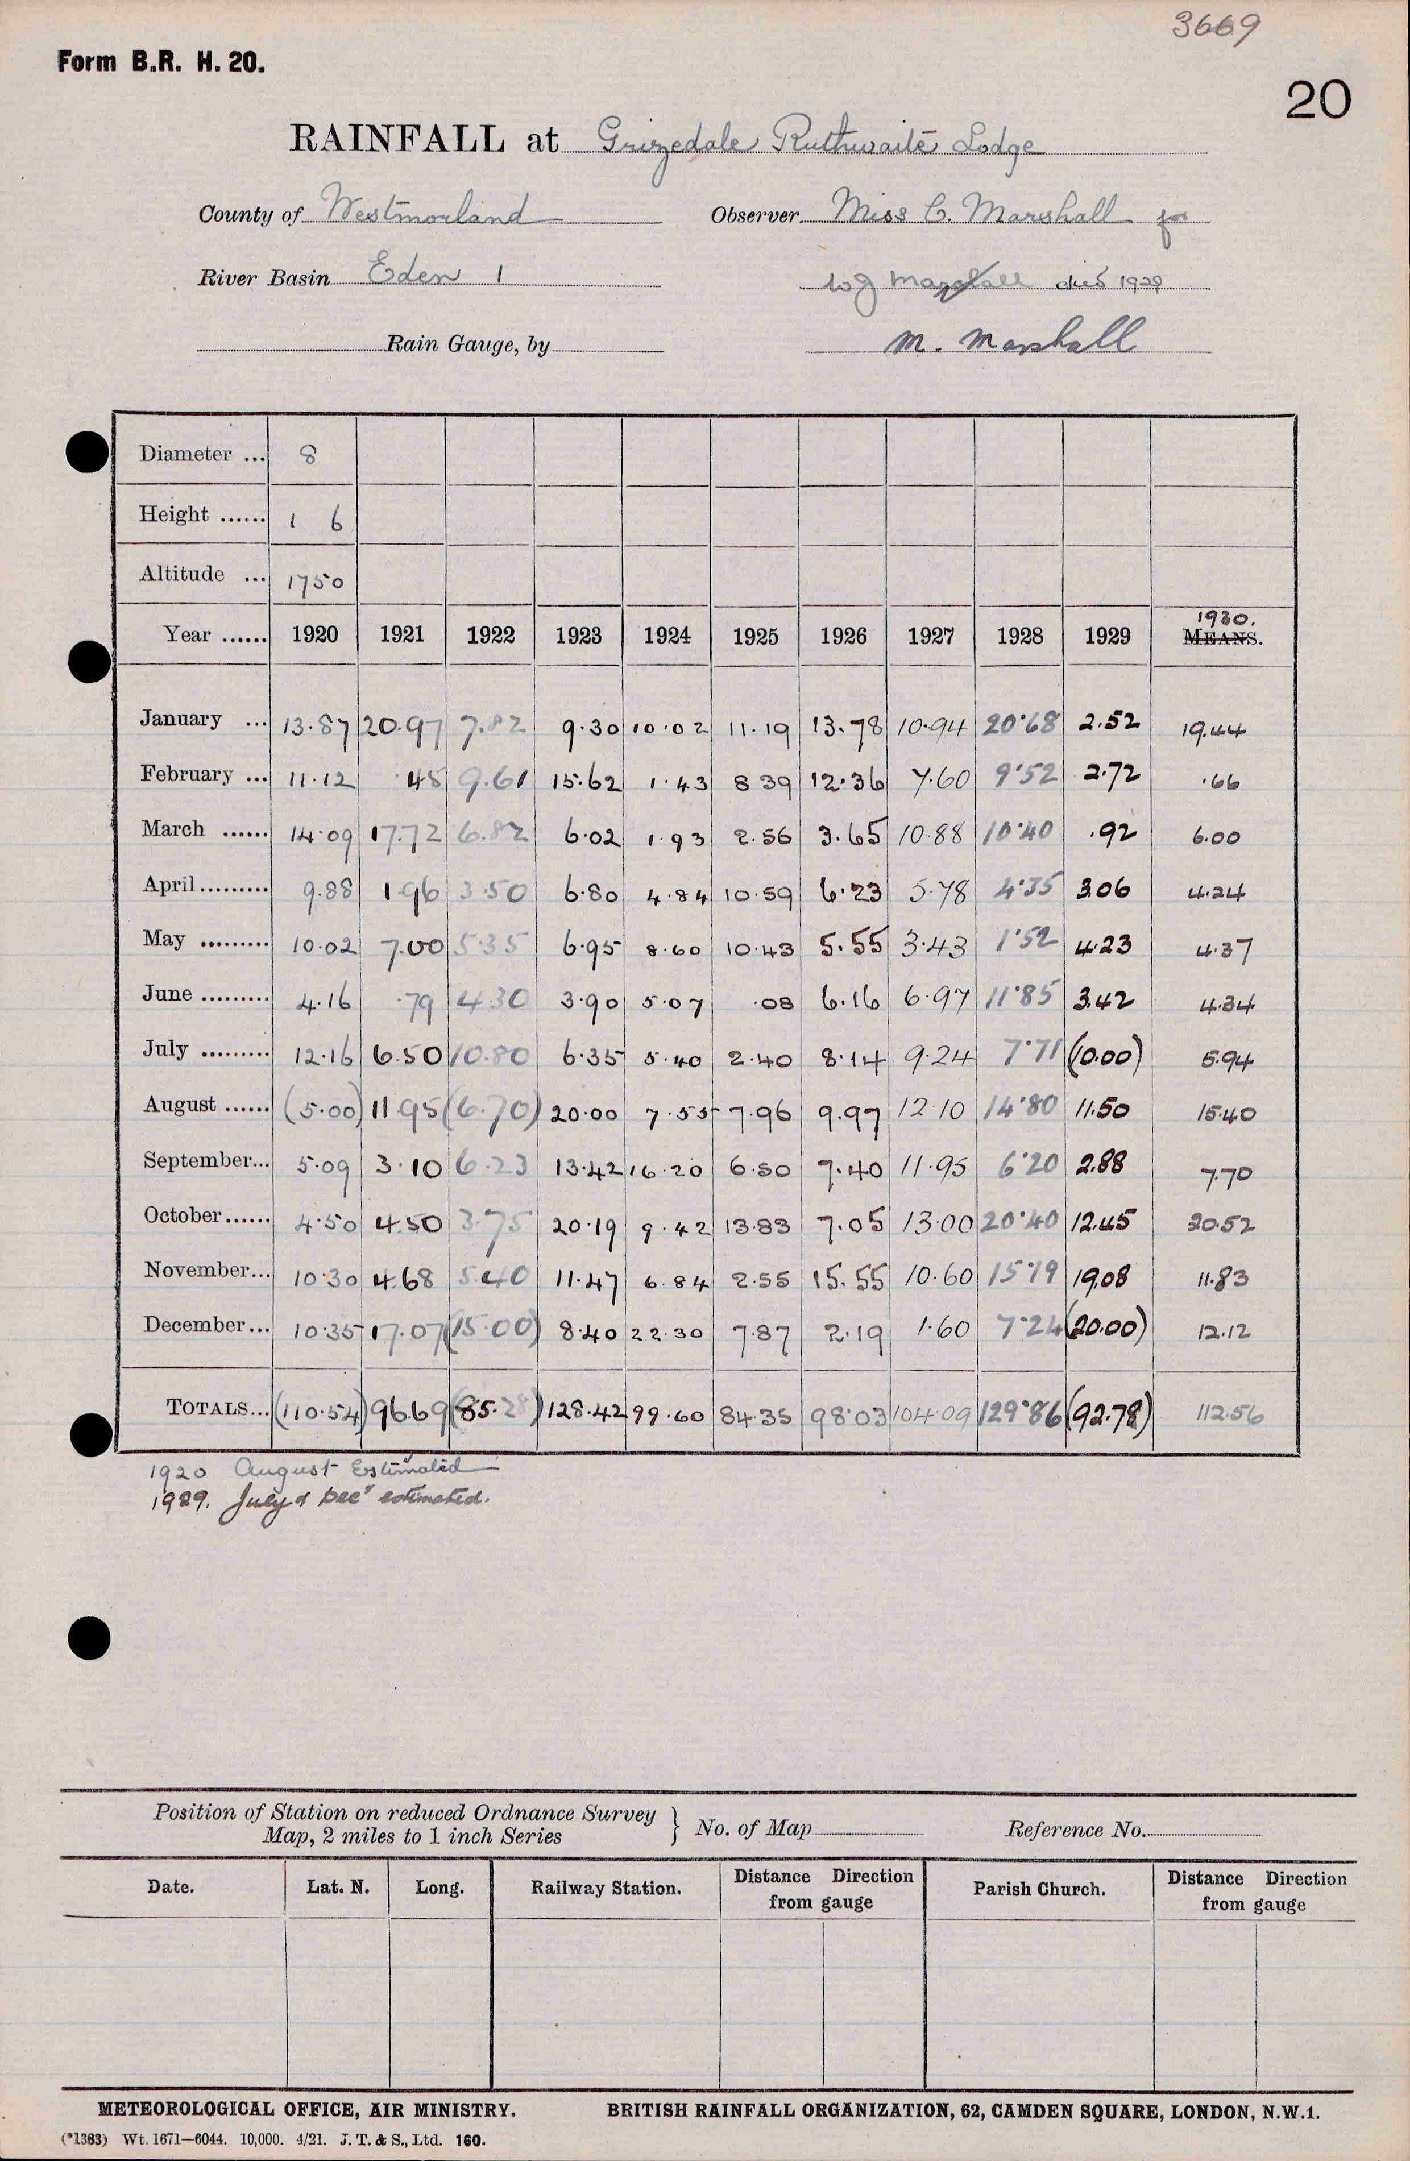 3669
Form B.R. H. 20.
20
RAINFALL at Grizedale Ruthwaite Lodge
County of Westmorland Observer Miss C. Marshall for
River Basin Eden 1 W J Marshall died 1928
Rain Gauge, by M. Marshall
Diameter ... 8
Height ...... 1 6
Altitude ... 1750
1930.
Year ...... 1920 1921 1922 1923 1924 1925 1926 1927 1928 1929 MEANS.
January ... 13.87 20.97 7.82 9.30 10.02 11.19 13.78 10.94 20.68 2.52 19.44
February ... 11.12 .45 9.61 15.62 1.43 8 39 12.36 7.60 9.52 2.72 .66
March ...... 14.09 17.72 6.82 6.02 1.93 2.56 3.65 10.88 10.40 .92 6.00
April ......... 9.88 1 96 3.50 6.80 4.84 10.59 6.23 5.78 4.35 3.06 4.24
May ......... 10.02 7.00 5.35 6.95 8.60 10.43 5.55 3.43 1.52 4.23 4.37
June ......... 4.16 .79 4.30 3.90 5.07 .08 6.16 6.97 11.85 3.42 4.34
July ......... 12.16 6.50 10.80 6.35 5.40 2.40 8.14 9.24 7.71 (10.00) 5.94
August ...... (5.00) 11 95 (6.70) 20.00 7.55 7.96 9.97 12 10 14.80 11.50 15.40
September... 5.09 3.10 6.23 13.42 16.20 6.50 7.40 11.95 6.20 2.88 7.70
October ...... 4.50 4.50 3.75 20.19 9.42 13.83 7.05 13.00 20.40 12.45 20.52
November... 10.30 4.68 5.40 11.47 6.84 2.55 15.55 10.60 15.19 19.08 11.83
December... 10.35 17.07 (15.00) 8.40 22.30 7.87 2.19 1.60 7.24 (20.00) 12.12
TOTALS... (110.54) 96.69 (85.28) 128.42 99.60 84.35 98.03 104.09 129.86 (92.78) 112.56
1920 August Estimated
1929. July & Decr estimated.
Position of Station on reduced Ordnance Survey
Map, 2 miles to 1 inch Series } No. of Map Reference No.
Date. Lat. N. Long. Railway Station. Distance Direction from gauge Parish Church. Distance Direction from gauge
METEOROLOGICAL OFFICE, AIR MINISTRY. BRITISH RAINFALL ORGANIZATION, 62, CAMDEN SQUARE, LONDON, N.W.1.
(*1383) Wt. 1671—6044. 10,000. 4/21. J. T. & S., Ltd. 160.